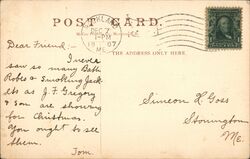 POST CARD.
DEC 7
1907
THE ADDRESS ONLY HERE.
Dear Friend:-
I never
saw so many Bath
Robes & Smoking Jack
ets as J. F. Gregory
& Son are showing
for Christmas.
You ought to see
them.
Tom.
Simeon H Goss
Stonington
Me.